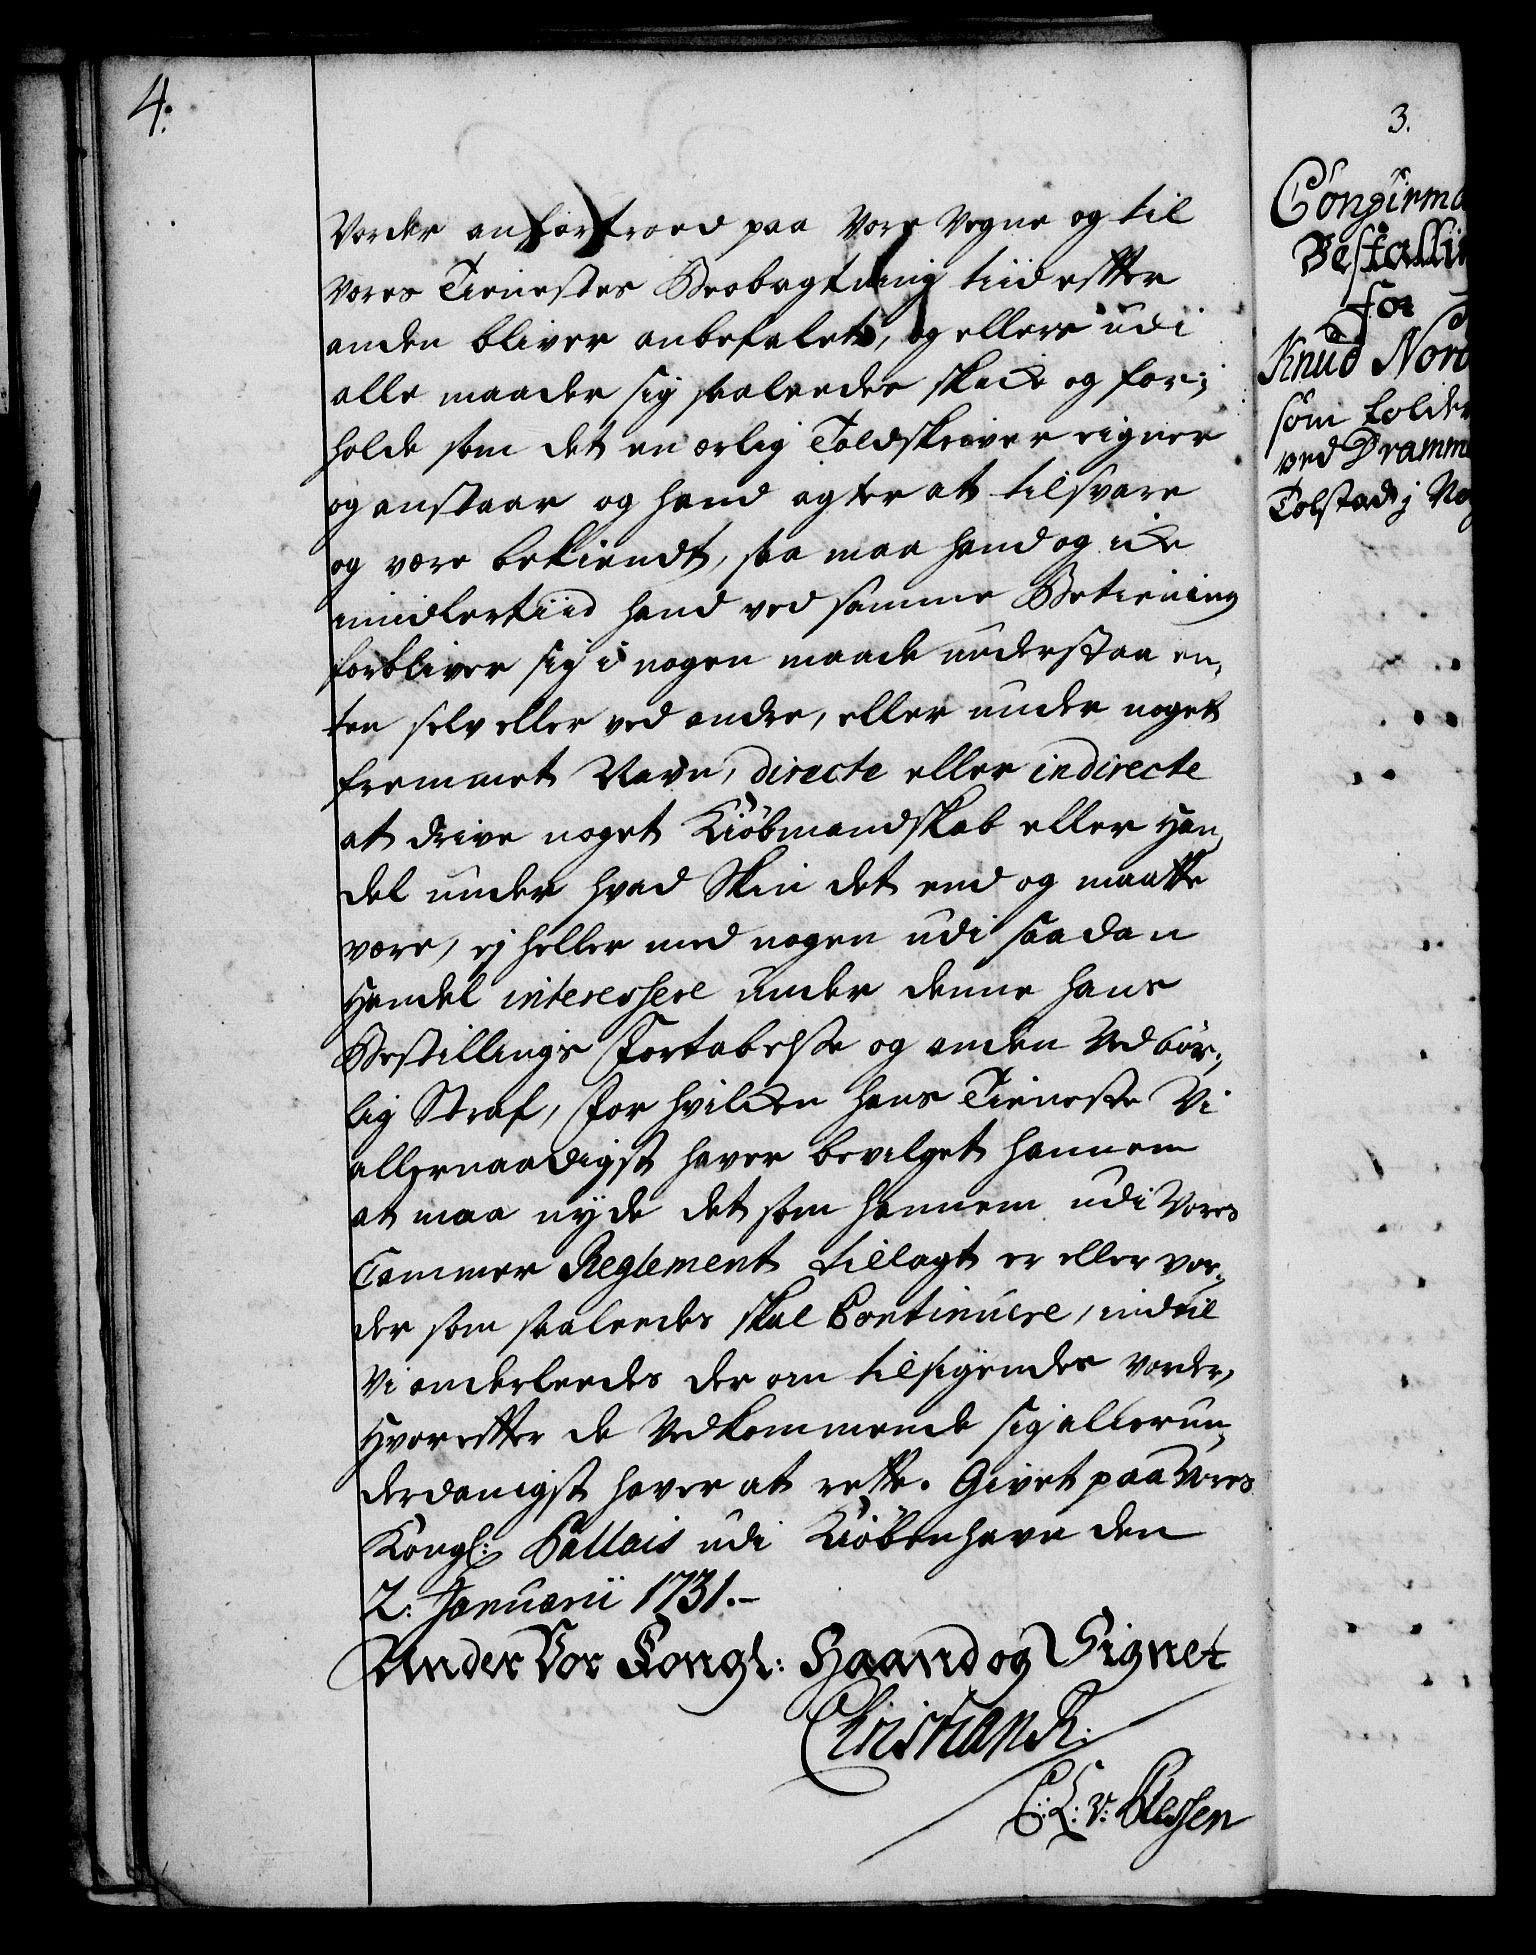 4.
Vorder anfortroed paa Vore Vegne og til
Vores Tienestes Beobagtning tiid efter
anden bliver anbefalet, og ellers udi
alle maader sig saaledes skicke og for-
holde som det en ærlig Toldskriver eigner
og anstaar og hand agter at tilsvare
og være bekiendt, saa maa hand og icke
imidlertiid hand ved samme Betiening
forbliver sig i nogen maade understaa en-
ten selv eller ved andre, eller under noget
fremmet Navn, directe eller indirecte
at drive noget Kiöbmandskab eller Han-
del under hvad Skin det end og maatte
være, ej heller med nogen udi saadan
Handel interessere under denne hans
Bestillings Fortabelse og anden Vedbör-
lig Straf, For hvilcken hans Tieneste Vi
allernaadigst haver bevilget hannem
at maa nyde det som hannem udi Vores
Cammer Reglement tillagt er eller vor-
der som saaledes skal Continuere, indtil
Vi anderleedes der om tilsigendes vorder,
Hvorefter de Vedkommende sig allerun-
derdanigst haver at rette. Givet paa Vores
Kongl: Pallais udi Kiöbenhavn den
2. Januarii 1731.-
Under Vor Kongl: Haand og Signet
Christian R.
C: L: v: Plessen
3.
Confirma
Bestallin
for
Knud Nord
som Tolder
ved Dramme
Tolsted j No